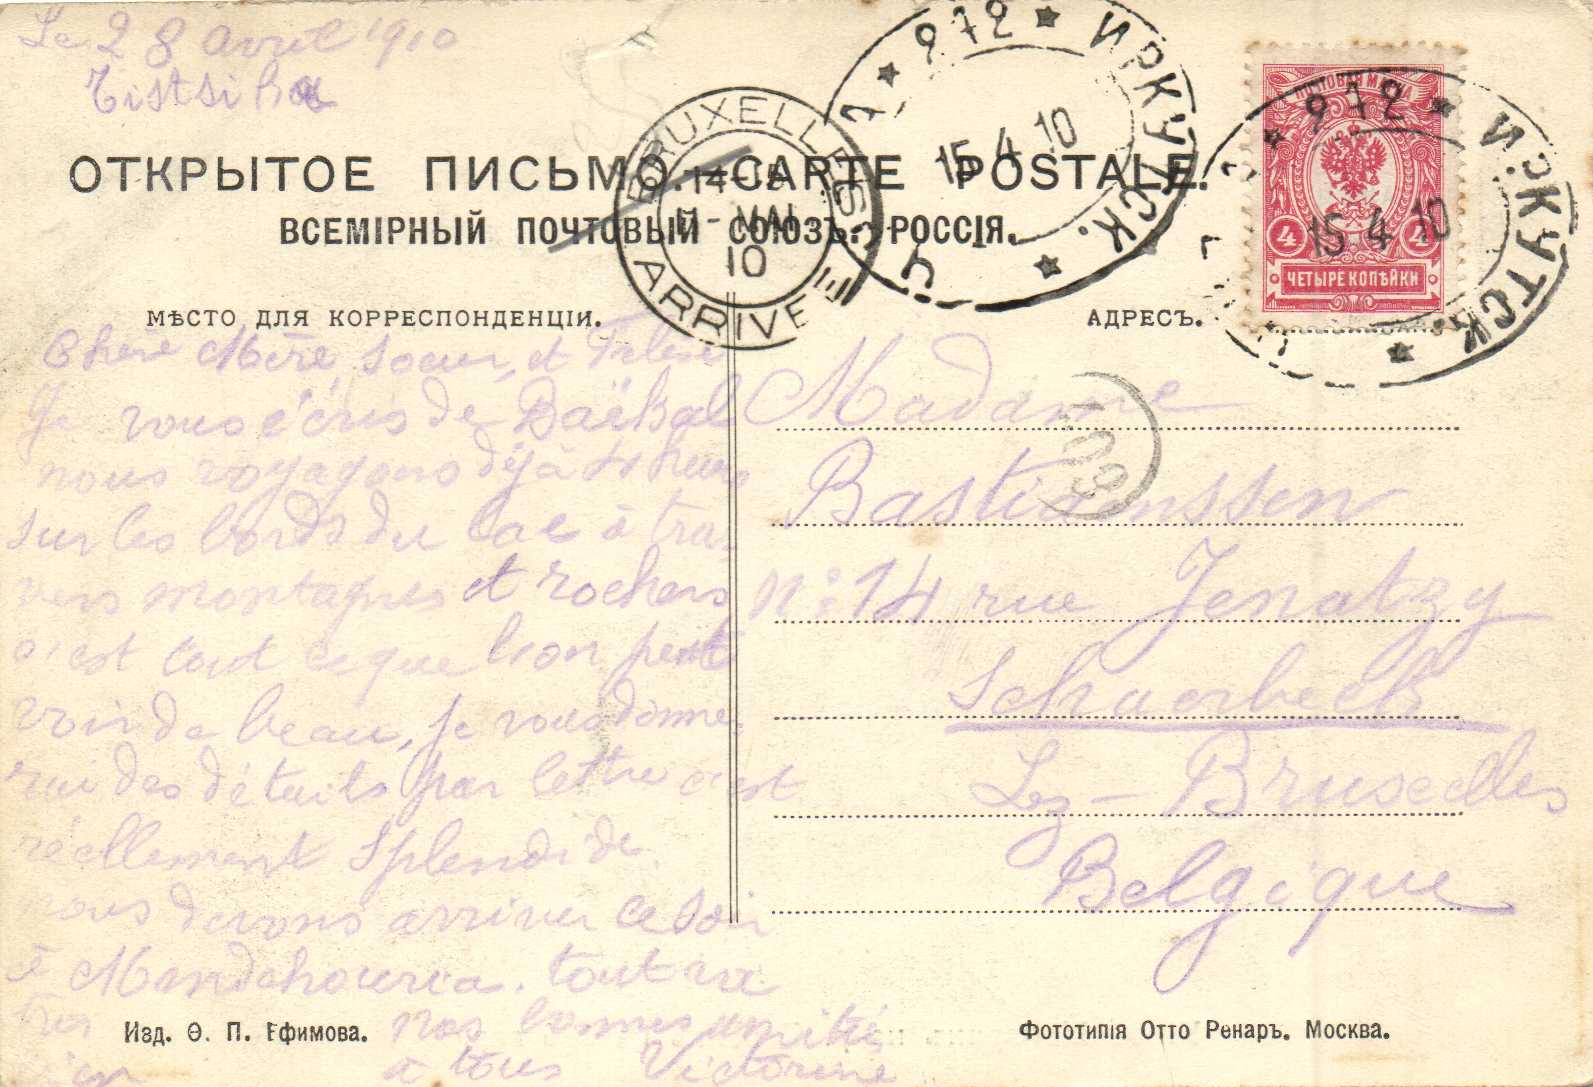 Le 28 avril 1910
Tistsika
ОТКРЫТОЕ ПИСЬМО.—CARTE POSTALE.
ВСЕМІРНЫЙ ПОЧТОВЫЙ СОЮЗЪ. РОССІЯ.
BRUXELLES
14-15
MAI
10
ARRIVEE
ИРКУТСК.
15 4 10
ПОЧТОВАЯ МАРКА
4 4
ЧЕТЫРЕ КОПѢЙКИ
ИРКУТСК.
15 4 10
МѢСТО ДЛЯ КОРРЕСПОНДЕНЦІИ.
Chère Mère Soeur, et Frères
Je vous écris de Baïkal
nous voyageons déjà heures
sur les bords du lac à tra-
vers montagnes et rochers
c'est tout ce que l'on peut
voir de beau, je vous donne-
rai des détails par lettre c'est
réellement splendide.
nous devons arriver ce soir
à Mandchouria. tout va
très
bien
nos bonnes amitiés
à tous Victorine
АДРЕСЪ.
Madame
Bastianssen
No: 14 rue Jenatzy
Schaerbeek
Lez-Bruxelles
Belgique
Изд. Ѳ. П. Ефимова.
Фототипія Отто Ренаръ. Москва.